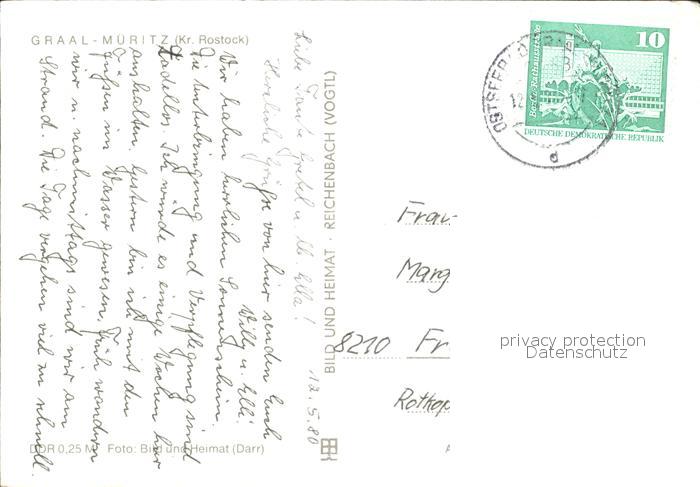 GRAAL-MÜRITZ (Kr. Rostock)
12.5.80
Liebe Tante Gretel u. Ella!
Herzliche Grüße von hier senden Euch
Willi u. Elli.
Wir haben herrlichen Sonnenschein.
Die Unterbringung und Verpflegung sind
tadellos. Ich würde es einige Wochen hier
aushalten, gestern bin ich mit den
Füßen im Wasser gewesen. Früh wandern
wir u. nachmittags sind wir am
Strand. Die Tage vergehen viel zu schnell.
DDR 0,25 M Foto: Bild und Heimat (Darr)
BILD UND HEIMAT · REICHENBACH (VOGTL)
10
Berlin, Rathausstraße
DEUTSCHE DEMOKRATISCHE REPUBLIK
OSTSEEBAD
12
d
Frau
Marg
8210 Fr
privacy protection
Datenschutz
Rotkop